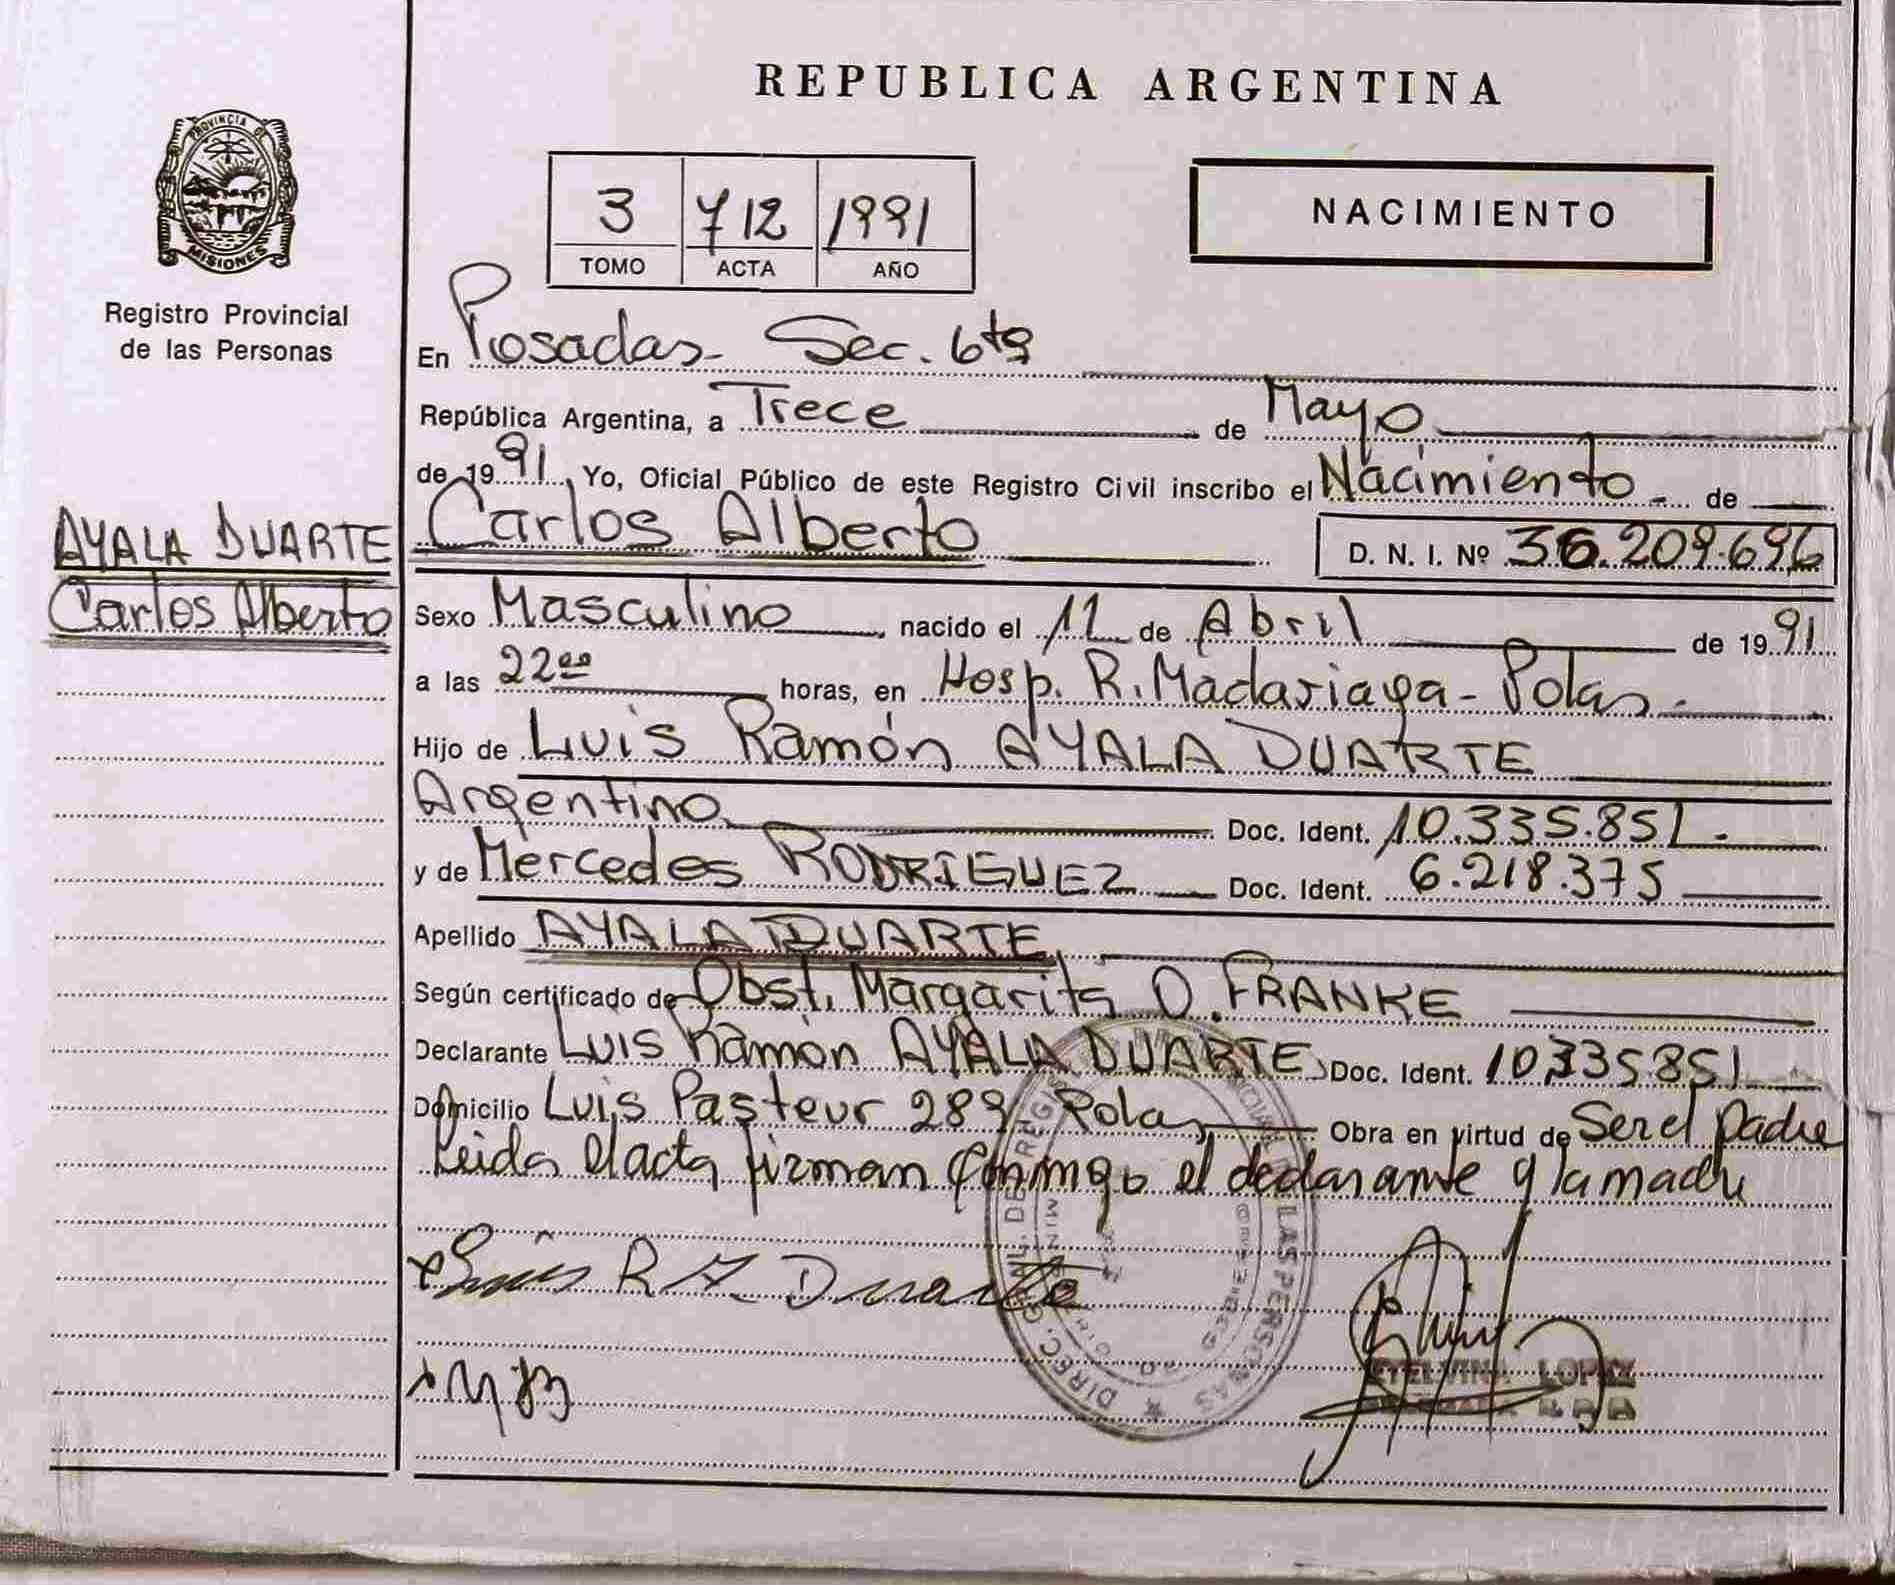 REPUBLICA ARGENTINA
PROVINCIA DE
MISIONES
Registro Provincial
de las Personas
3 712 1991
TOMO ACTA AÑO
NACIMIENTO
En Posadas - Sec. 6ta
República Argentina, a Trece de Mayo
de 1991, Yo, Oficial Público de este Registro Civil inscribo el Nacimiento de
AYALA DUARTE
Carlos Alberto
Carlos Alberto D. N. I. Nº 36.209.696
Sexo Masculino, nacido el 11 de Abril de 1991
a las 22⁰⁰ horas, en Hosp. R. Madariaga - Pdas.
Hijo de Luis Ramón AYALA DUARTE
Argentino Doc. Ident. 10.335.851.
y de Mercedes RODRIGUEZ Doc. Ident. 6.218.375
Apellido AYALA DUARTE
Según certificado de Obst. Margarita O. FRANKE
Declarante Luis Ramón AYALA DUARTE Doc. Ident. 10.335851
Domicilio Luis Pasteur 289 Pdas Obra en virtud de Ser el padre
Leida el acta firman conmigo el declarante y la madre
Luis R A. Duarte
DIREC. GRAL. DE REGIS LAS PERSONAS
ETELVINA LOPEZ